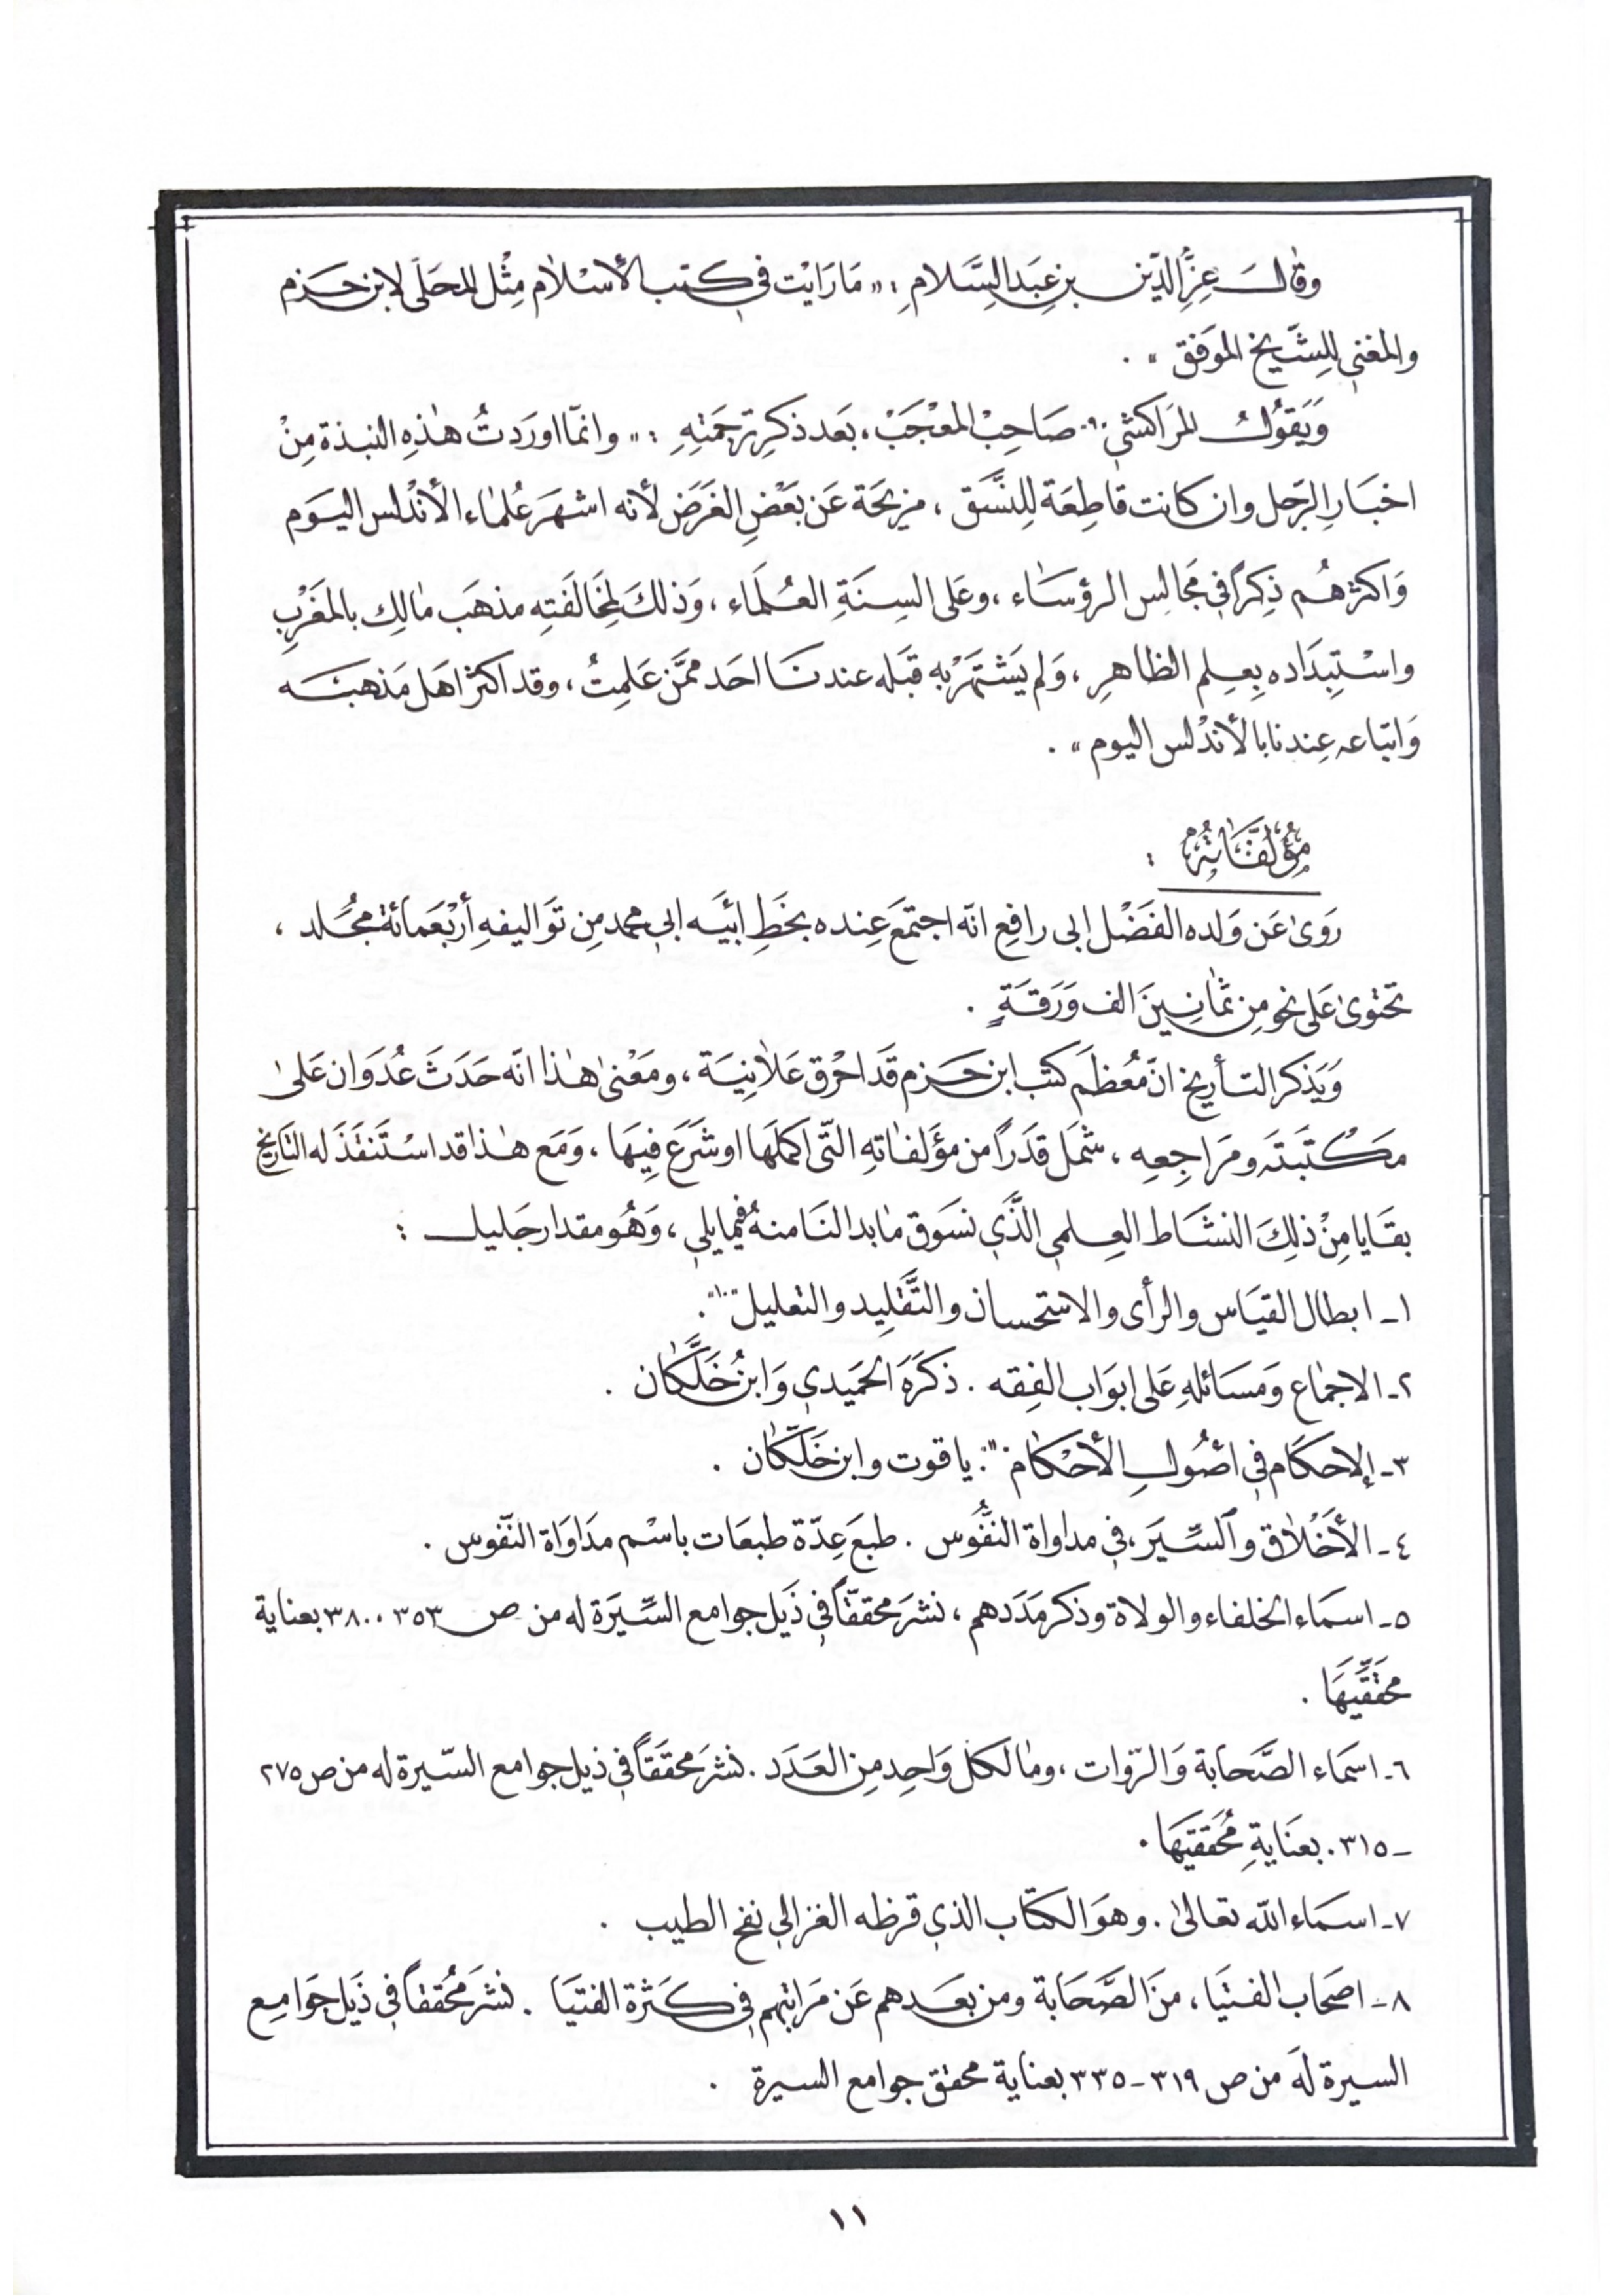 وقال عِزِّ الدِّين بن عبد السَّلام : « مَا رَايْت في كتب الأسْلام مِثْل المحَلّى لابن حَزم
والمغنى لِلشَّيخ الموَفق » .
وَيَقوُلُ المرَاكشي صَاحِبْ المعْجَبْ ، بَعد ذكرِ ترجَمَتِهِ : « وانمّا اورَدتُ هٰذِهِ النبذة مِنْ
اخبَارِ الرَجل وان كانت قاطِعَة لِلنَّسَق ، مزيحَة عَن بَعْضِ الغَرَض لأنه اشهَر عُلمَاء الأنْدلس اليَوم
وَاكثرهُم ذِكراً في مَجالِس الرؤسَاء ، وعَلى السِنَةِ العُلَمَاء ، وَذلكَ لمِخَالفَتِه مذهَب مٰالِك بالمغَرْبِ
واسْتِبِدَاده بِعِلم الظاهِرِ ، وَلم يَشتَهَرْ به قبَله عندنَا احَد ممَّن عَلِمتُ ، وقد اكثر اهَل مَذهبَه
وَاتبَاعه عِندنا بالأندْلس اليوم » .
مؤُلفَّاتهُ :
رَوىٰ عَن وَلده الفَضْل ابى رافِعِ انّه اجتمَع عِنده بخَطِ ابيَه ابي محمد مِن توَاليفهِ أرْبَعَمائة مجُلد ،
تحتوىٰ عَلى نحو مِن ثمَانِينَ الف وَرَقَةٍ .
وَيَذكر التأريخ انّ مُعظَم كتب ابن حَزم قَد احْرق عَلاٰنِيَة ، ومَعْنىٰ هٰذا انّه حَدَثَ عُدَوان عَلىٰ
مَكْتَبَتَه ومَرَاجِعِهِ ، شمَل قَدَراً من مؤَلفاتهِ التّى اكمَلَها او شَرَعَ فِيهَا ، وَمَع هٰذا قد اسْتَنقَذَ له التاريخ
بقَايا مِنْ ذلِكَ النشَاط العِلمي الذَّي نسَوق مٰا بدا لنَا منهُ فيمَا يلي ، وَهُو مقدار جَليل :
١ـ ابطال القيَاس والرأى والاستحسان والتَّقلِيد والتعليل .
٢ـ الاجمٰاع وَمسَائلهِ عَلى ابوَاب الفِقه . ذكَرَه الحمَيدي وَابنُ خَلَّكان .
٣ـ إلاحكَام في اصُولِ الأحْكام : ياقوت وابن خَلّكان .
٤ـ الأخْلاٰق والسِّيَر ، في مداواة النفُّوس . طبعَ عِدّة طبعَات باسْم مدَاوَاة النفّوس .
٥ـ اسمَاء الخلفاء والولاة وذكر مَدَدهم ، نشرَ محققّاً في ذَيل جوامع السِّيَرة له من ص ٣٥٣ ٠٠ ٣٨٠ بعناية
محقّقِّيهَا .
٦ـ اسمَاء الصَّحَابة وَالروّات ، ومٰا لكل وَاحِد مِن العَدَد . نشرَ محققَاً في ذيل جوامع السّيرة له من ص ٢٧٥
ـ ٣١٥ . بعنَايةِ مُحقَقيَهَا .
٧ـ اسمَاء الله تعالىٰ . وهوَ الكتّاب الذي قرظه الغزالي نفح الطيب .
٨ـ اصَحاب الفتيَا ، منَ الصَّحَابة ومن بعَدهم عَن مرَاتبهم في كثرة الفتيَا . نشرَ محُققاً في ذَيل جَوامِع
السيرة لهَ من ص ٣١٩ ـ ٣٣٥ بعناية محقق جوامع السيرة .
١١